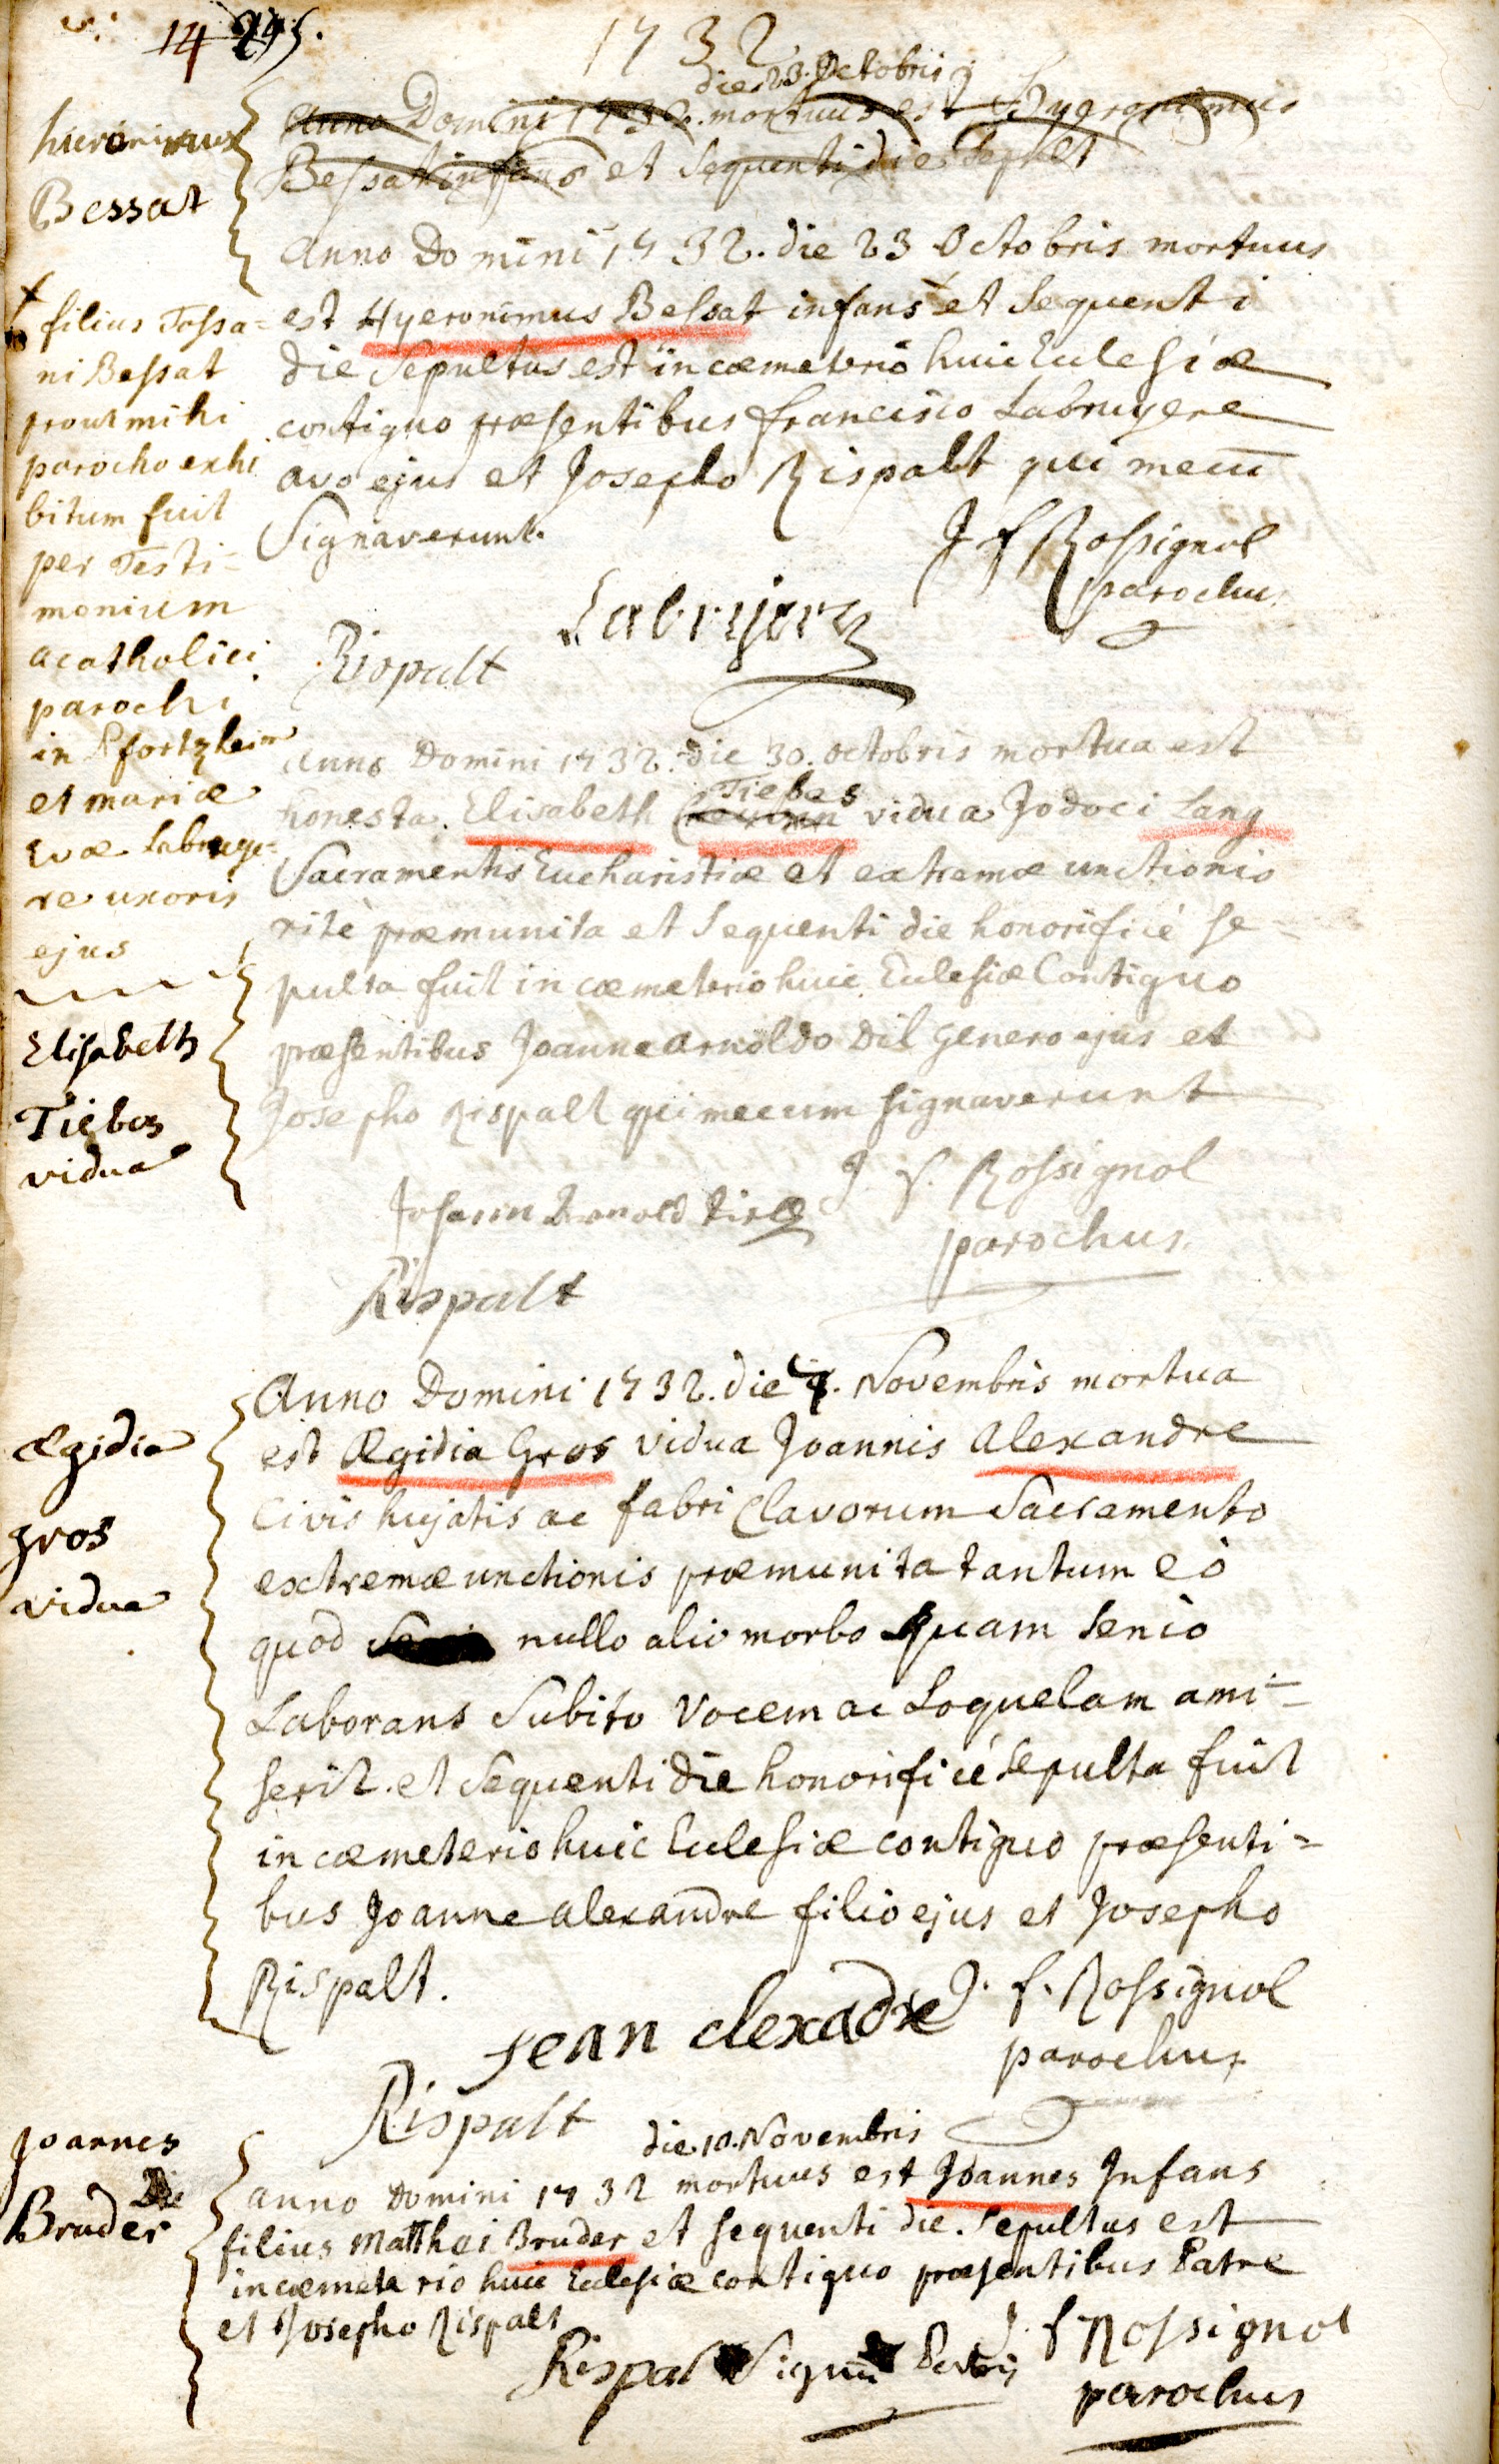 14
1732
hieronimus
Bessat
die 23. Octobris
Anno Domini 1732. mortuus est Hyeronimus
Bessat infans et sequenti die Sepult
Anno Domini 1732. die 23 Octobris mortuus
est Hyeronimus Bessat infans et sequenti
die Sepultus est in cœmeterio huic Eclesiæ
contiguo præsentibus francisco Labruyere
avo ejus et Josepho Rispalt qui mecū
Signaverunt.
J f Rossignol
parochus
Labrijere
Rispalt
filius Tossa=
ni Bessat
prout mihi
parocho exhi
bitum fuit
per Testi=
monium
acatholici
parochi
in Pfortzheim
et mariæ
Evæ Labruye=
re uxoris
ejus
Elisabeth
Tiebes
vidua
Anno Domini 1732. die 30. octobris mortua est
Tiebes
honesta Elisabeth vidua Jodoci Lang
Sacramentis Eucharistiæ et extremæ unctionis
ritè præmunita et Sequenti die honorificé se=
pulta fuit in cœmeterio huic Eclesiæ Contiguo
præsentibus Joanne arnoldo Dil genero ejus et
Josepho Rispalt qui mecum signaverunt
J. f. Rossignol
parochus
Johann Arnold
Rispalt
Ægidia
gros
vidua
Anno Domini 1732. die 9. Novembris mortua
est Ægidia Gros vidua Joannis Alexandre
Civis hujatis ac fabri Clavorum Sacramento
extremæ unctionis præmunita tantum eò
quod nullo alio morbo quam senio
Laborans Subito Vocem ac Loquelam ami=
serit. et Sequenti die honorificé sepulta fuit
in cœmeterio huic Eclesiæ contiguo præsenti=
bus Joanne alexandre filio ejus et Josepho
Rispalt.
J. f. Rossignol
parochus
jean alexadre
Rispalt
Joannes
Bruder
die 10. Novembris
anno Domini 1732 mortuus est Joannes Infans
filius Matthei Bruder et sequenti die. Sepultus est
in cœmeterio huic Eclesiæ contiguo præsentibus Patre
et Josepho Rispalt
J. f Rossignol
parochus
Rispal Signū Patris